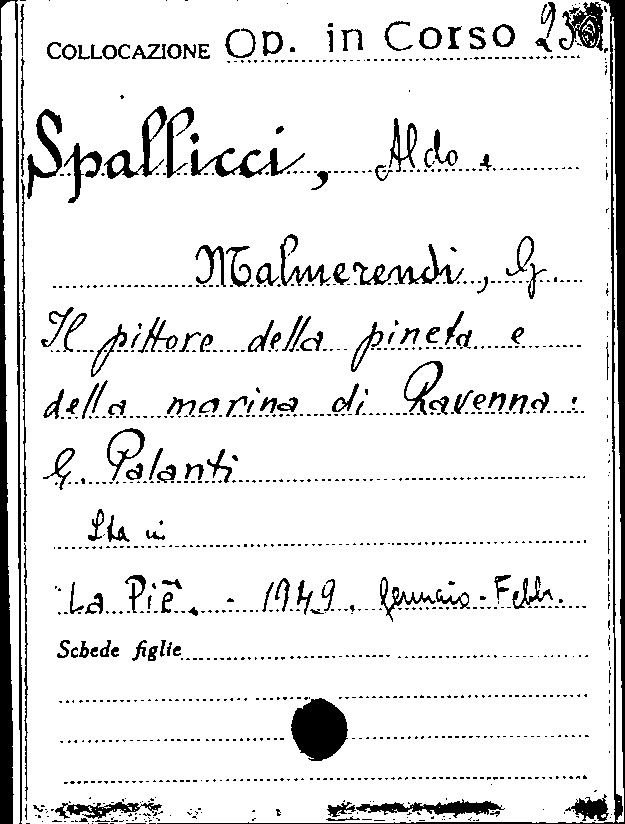 COLLOCAZIONE Op. in Corso
Spallicci, Aldo e
Malmerendi, G.
Il pittore della pineta e
della marina di Ravenna:
G. Palanti
Sta in
"La Piê". - 1949. Gennaio - Febbr.
Schede figlie